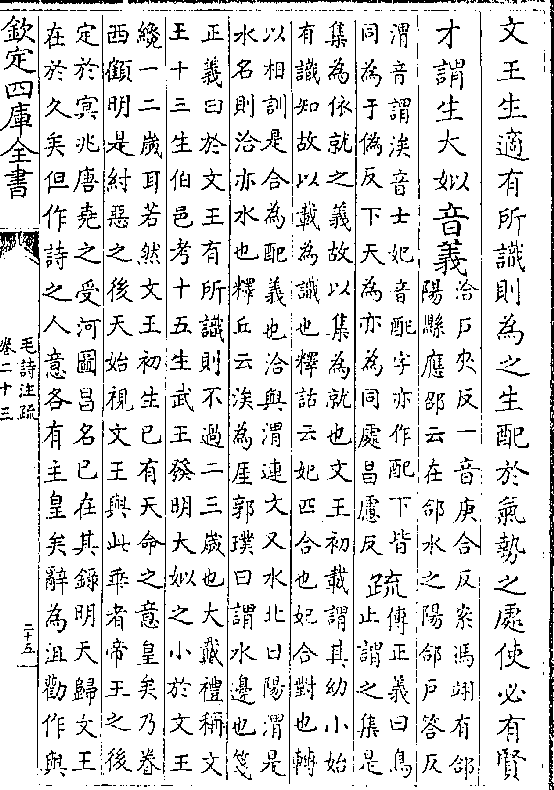 文王生適有所識則為之生配於氣勢之處使必有賢
才謂生大姒音義
洽戸夾反一音庚合反案馮翊有郃
陽縣應邵云在郃水之陽郃戸答反
渭音謂涘音士妃音配字亦作配下皆
同為于偽反下天為亦為同處昌慮反
疏
傳正義曰鳥
止謂之集是
集為依就之義故以集為就也文王初載謂其幼小始
有識知故以載為識也釋詁云妃匹合也妃合對也轉
以相訓是合為配義也洽與渭連文又水北曰陽渭是
水名則洽亦水也釋丘云涘為厓郭璞曰謂水邊也箋
正義曰於文王有所識則不過二三歳也大戴禮稱文
王十三生伯邑考十五生武王發明大姒之小於文王
纔一二嵗耳若然文王初生已有天命之意皇矣乃眷
西顧明是紂惡之後天始視文王與此乖者帝王之後
定於冥兆唐堯之受河圖昌名已在其錄明天歸文王
在於久矣但作詩之人意各有主皇矣辭為沮勸作與
欽定四庫全書
毛詩注疏
卷二十三
二十五